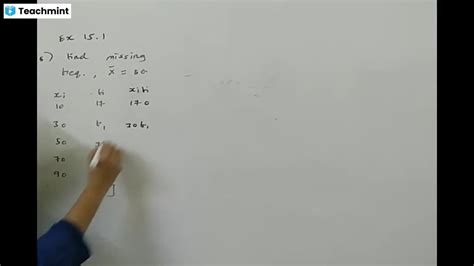 Teachmint
Ex 15.1
) Find missing
freq., x̄ = 50
xi fi xifi
10 17 170
30 f1 30f1
50
70
90